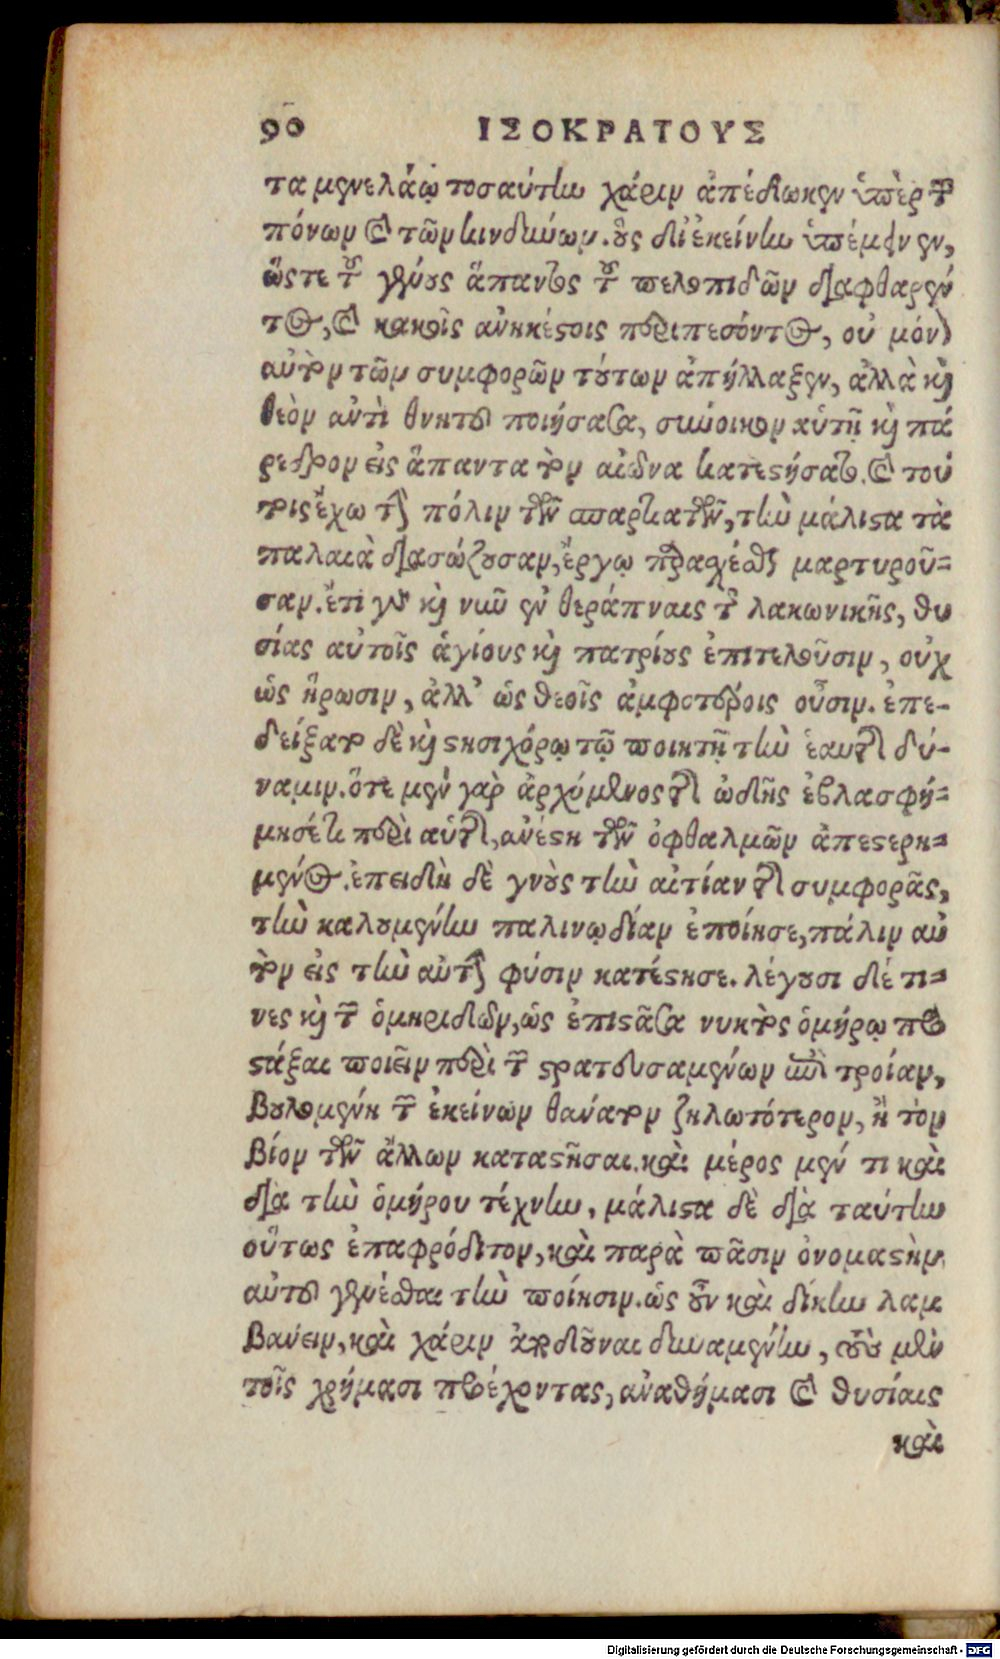 90 ΙΣΟΚΡΑΤΟΥΣ
τα μενελάῳ τοσαύτην χάριν ἀπέδωκεν ὑπὲρ τῶν
πόνων καὶ τῶν κινδύνων. οὓς δι' ἐκείνην ὑπέμεινεν,
ὥστε τοῦ γένους ἅπαντος τοῦ πελοπιδῶν διαφθαρέν
τος, καὶ κακοῖς ἀνηκέστοις περιπεσόντος, οὐ μόνον
αὐτὸν τῶν συμφορῶν τούτων ἀπήλλαξεν, ἀλλὰ καὶ
θεὸν ἀντὶ θνητοῦ ποιήσασα, σύνοικον αὑτῇ καὶ πά
ρεδρον εἰς ἅπαντα τὸν αἰῶνα κατεστήσατο. καὶ τού
τοις ἔχω τὴν πόλιν τῶν σπαρτιατῶν, τὴν μάλιστα τὰ
παλαιὰ διασώζουσαν, ἔργῳ παραχέσθαι μαρτυροῦ=
σαν. ἔτι γὰρ καὶ νῦν ἐν θεράπναις τῆς λακωνικῆς, θυ
σίας αὐτοῖς ἁγίους καὶ πατρίους ἐπιτελοῦσιν, οὐχ
ὡς ἥρωσιν, ἀλλ' ὡς θεοῖς ἀμφοτέροις οὖσιν. ἐπε-
δείξατο δὲ καὶ στησιχόρῳ τῷ ποιητῇ τὴν ἑαυτῆς δύ-
ναμιν. ὅτε μὲν γὰρ ἀρχόμενος τῆς ᾠδῆς ἐβλασφή=
μησέ τι περὶ αὑτῆς, ἀνέστη τῶν ὀφθαλμῶν ἀπεστερη=
μένος. ἐπειδὴ δὲ γνοὺς τὴν αἰτίαν τῆς συμφορᾶς,
τὴν καλουμένην παλινῳδίαν ἐποίησε, πάλιν αὐ
τὸν εἰς τὴν αὐτὴν φύσιν κατέστησε. λέγουσι δέ τι=
νες καὶ τῶν ὁμηριδῶν, ὡς ἐπιστᾶσα νυκτὸς ὁμήρῳ προ
στάξαι ποιεῖν περὶ τῶν στρατευσαμένων ἐπὶ τροίαν,
βουλομένη τῶν ἐκείνων θάνατον ζηλωτότερον, ἢ τὸν
βίον τῶν ἄλλων καταστῆσαι. καὶ μέρος μέν τι καὶ
διὰ τὴν ὁμήρου τέχνην, μάλιστα δὲ διὰ ταύτην
οὕτως ἐπαφρόδιτον, καὶ παρὰ πᾶσιν ὀνομαστὴν
αὐτοῦ γενέσθαι τὴν ποίησιν. ὡς οὖν καὶ δίκην λαμ
βάνειν, καὶ χάριν ἀποδοῦναι δυναμένην, τοὺς μὲν
τοῖς χρήμασι προέχοντας, ἀναθήμασι καὶ θυσίαις
καὶ
Digitalisierung gefördert durch die Deutsche Forschungsgemeinschaft - DFG